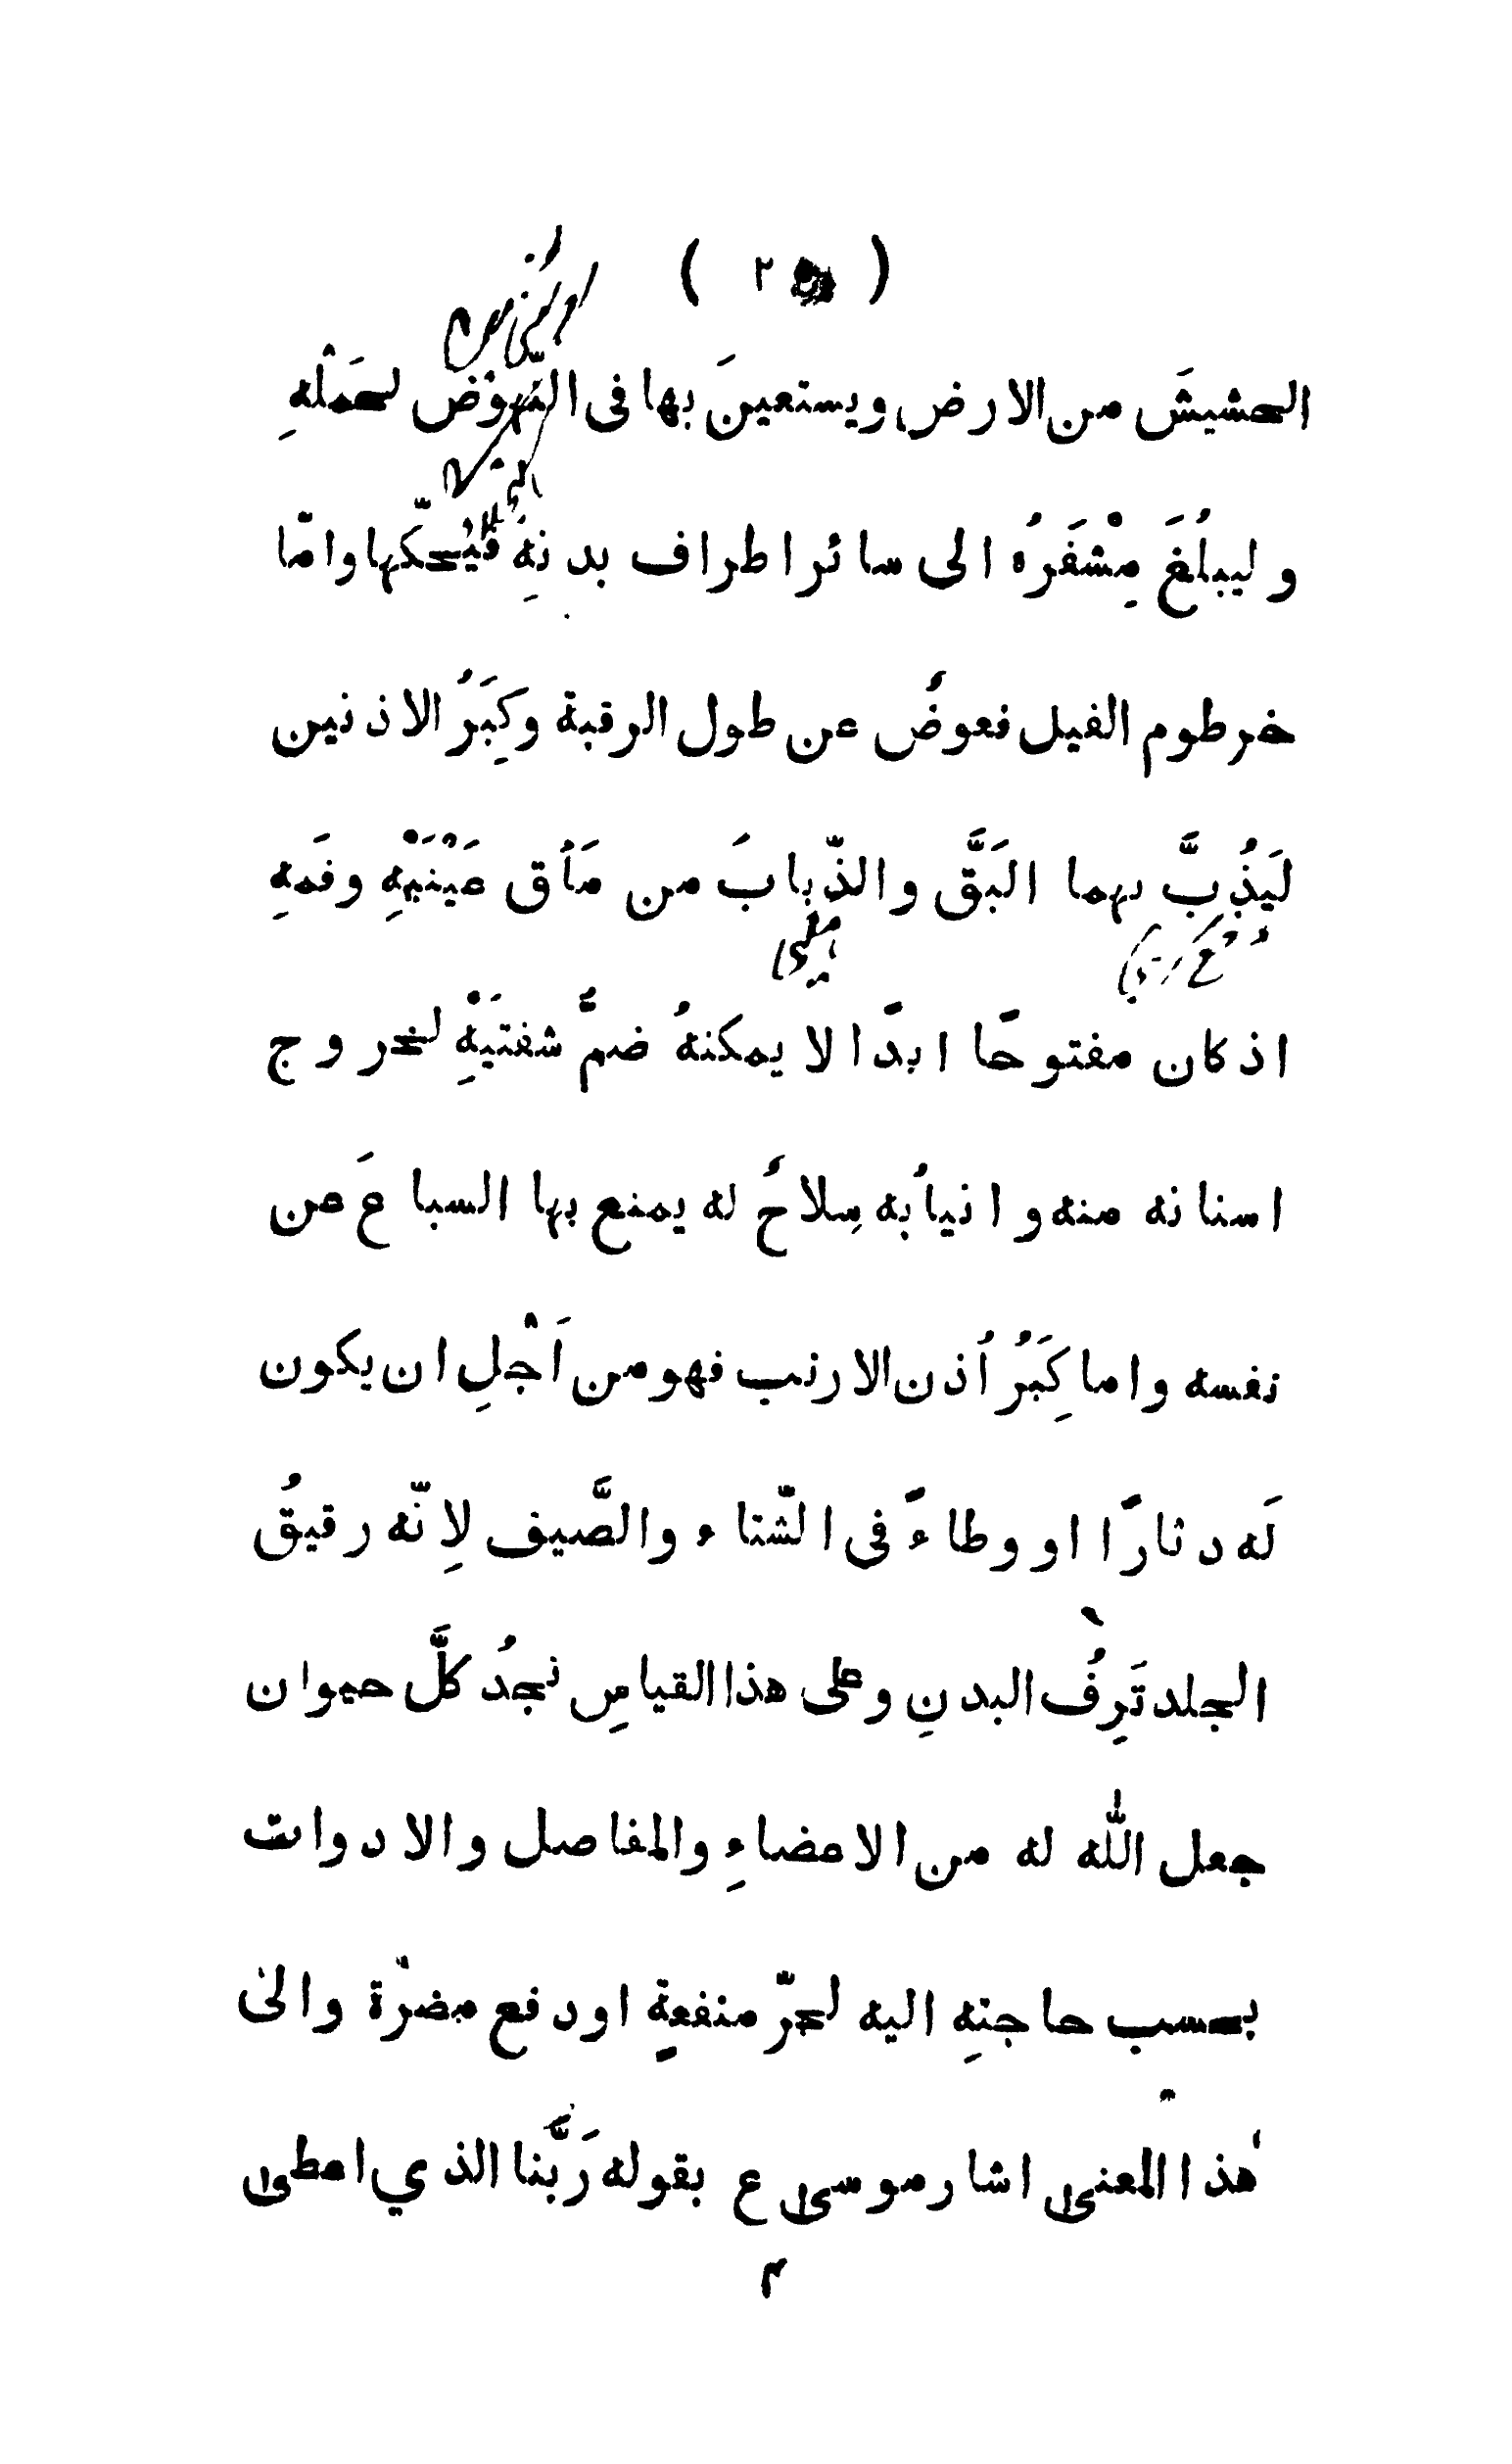 الحشيشَ من الارض ويستعينَ بها فى النّهوْض لحَمْلهِ
و ليبلُغَ مِشْفَرُه الى سائر اطراف بدنِهِ فيُحكّها وامّا
خرطوم الفيل فعوضٌ عن طول الرقبة وكِبَرُ الاذنين
لَيَذُبَّ بهما البَقَّ والذّبابَ من مَأق عَيْنَيْهِ وفَمهِ
اذ كان مفتوحًا ابدًا لا يمكنهُ ضمُّ شفتيَهْ لخروج
اسنانه منه و انيابُه سِلاحٌ له يمنع بها السباعَ عن
نفسه واما كِبَرُ اُذن الارنب فهو من اَجْلِ ان يكون
لَه دثارًا او وطاءً فى الشّتاء والصَّيف لِانّه رقيقُ
الجلد تَرِفُ البدنِ وعلى هذا القياسِ نجدُ كلَّ حيوان
جعل اللّٰه له من الاعضاءِ والمفاصل والادوات
بحسب حاجتِه اليه لجرّ منفعةٍ اودفع مضرّة والىٰ
هٰذا المعنى اشار موسى ع بقوله رَبَّنا الذي اعطى